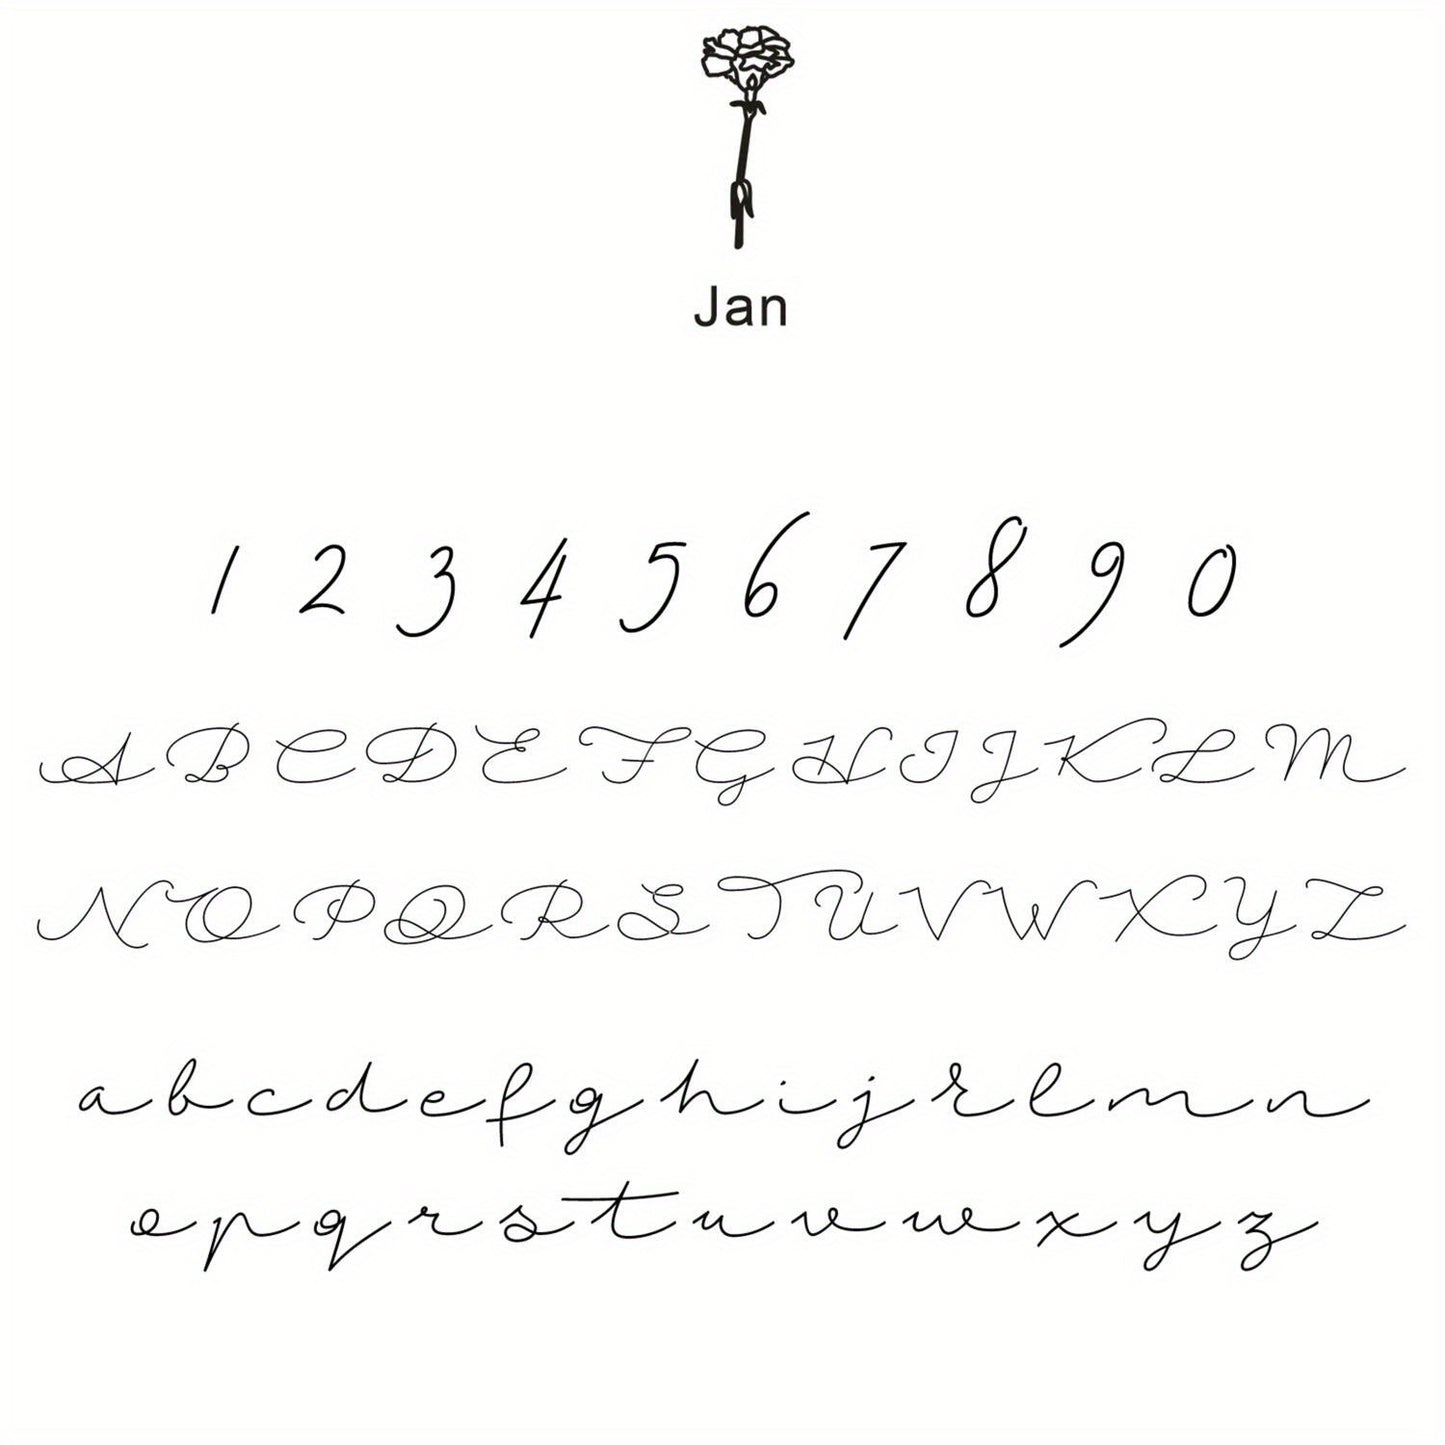 Jan
1 2 3 4 5 6 7 8 9 0
A B C D E F G H I J K L M
N O P Q R S T U V W X Y Z
a b c d e f g h i j k l m n
o p q r s t u v w x y z